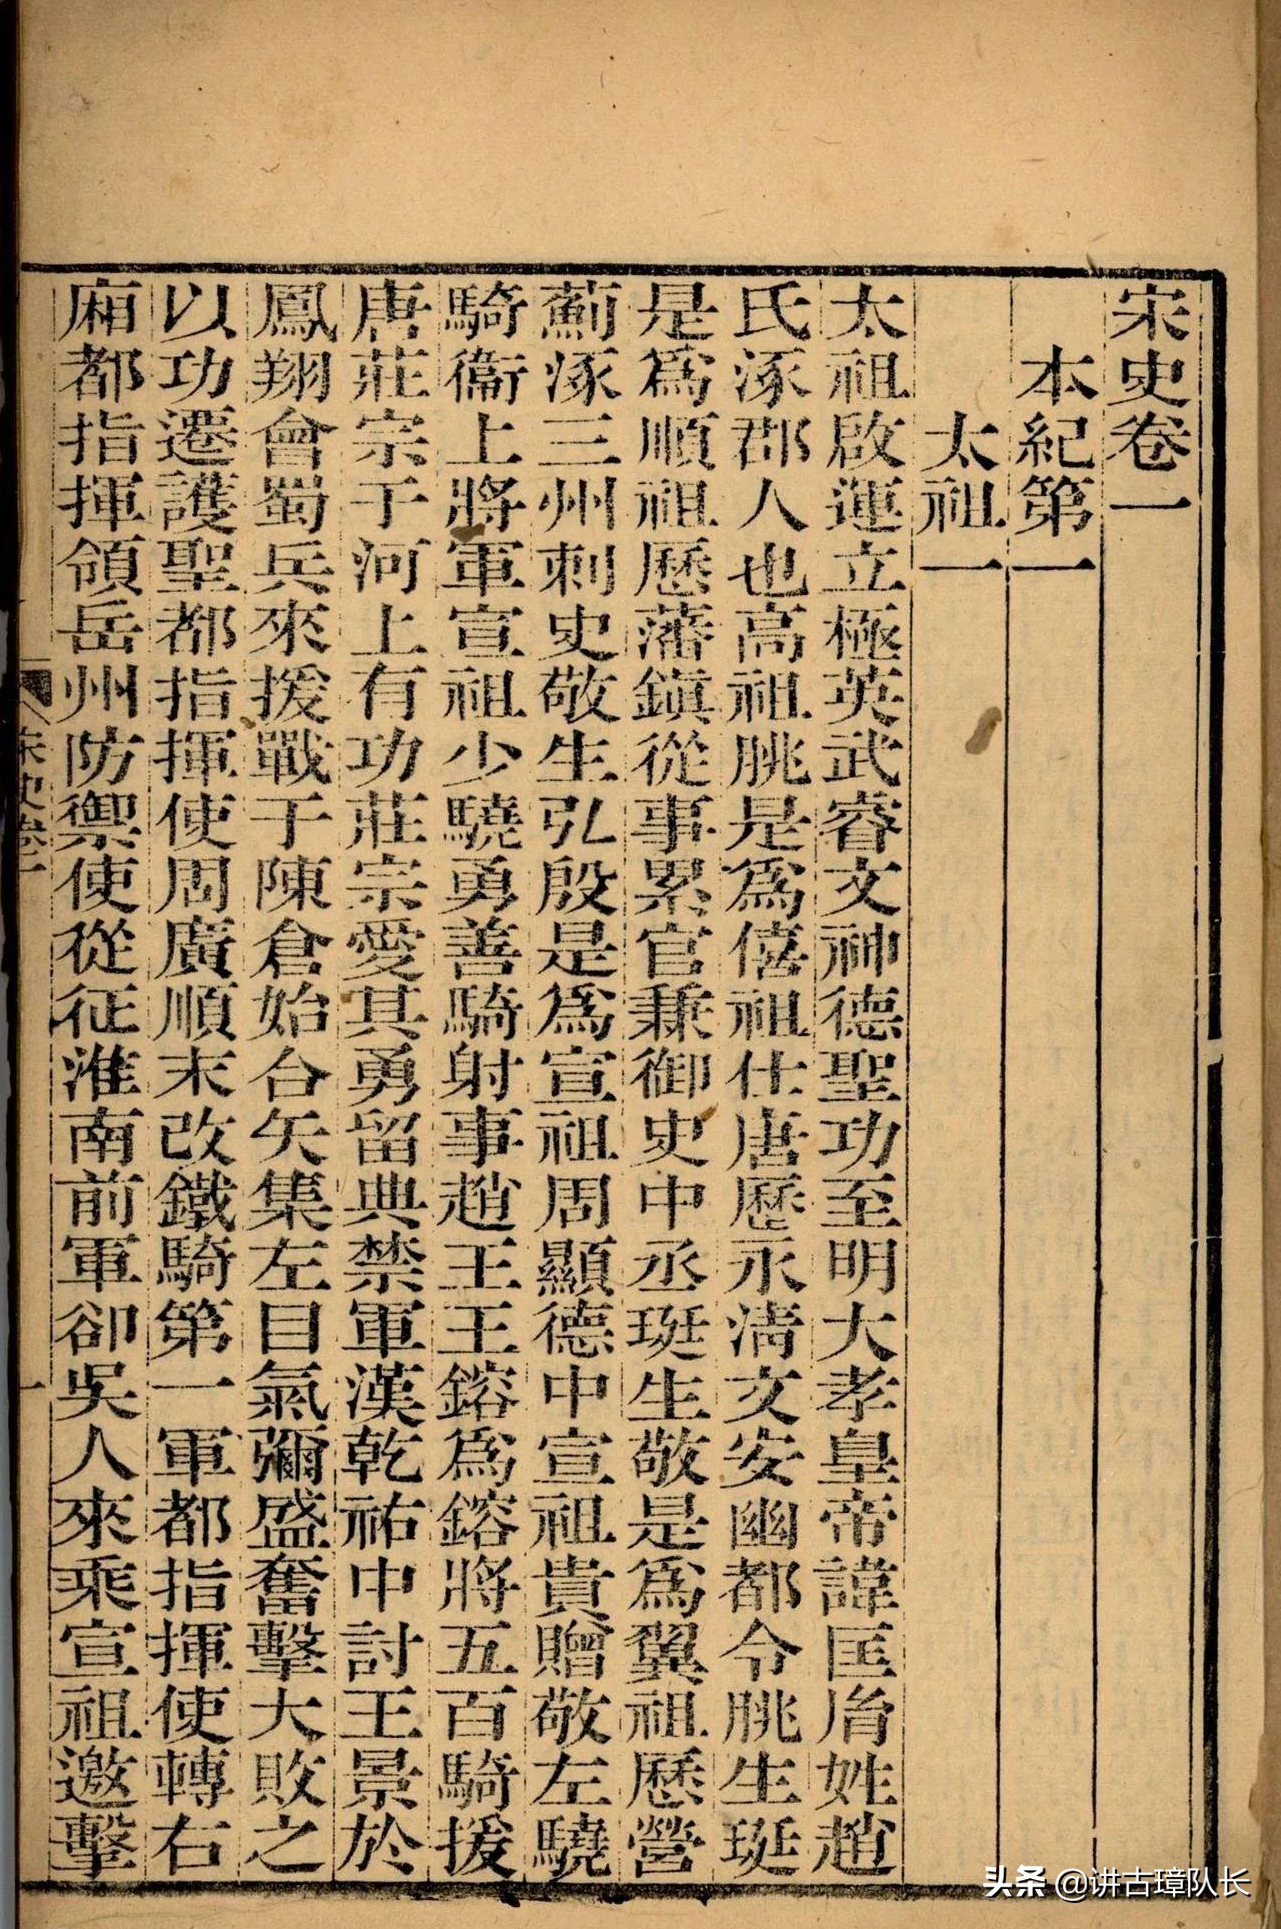 宋史卷一
本紀第一
太祖一
太祖啟運立極英武睿文神德聖功至明大孝皇帝諱匡胤姓趙
氏涿郡人也高祖朓是爲僖祖仕唐歷永清文安幽都令朓生珽
是爲順祖歷藩鎭從事累官兼御史中丞珽生敬是爲翼祖歷營
薊涿三州刺史敬生弘殷是爲宣祖周顯德中宣祖貴贈敬左驍
騎衞上將軍宣祖少驍勇善騎射事趙王王鎔爲鎔將五百騎援
唐莊宗于河上有功莊宗愛其勇留典禁軍漢乾祐中討王景於
鳳翔會蜀兵來援戰于陳倉始合矢集左目氣彌盛奮擊大敗之
以功遷護聖都指揮使周廣順末改鐵騎第一軍都指揮使轉右
廂都指揮領岳州防禦使從征淮南前軍卻吳人來乘宣祖邀擊
宋史卷一
一
头条 @讲古璋队长